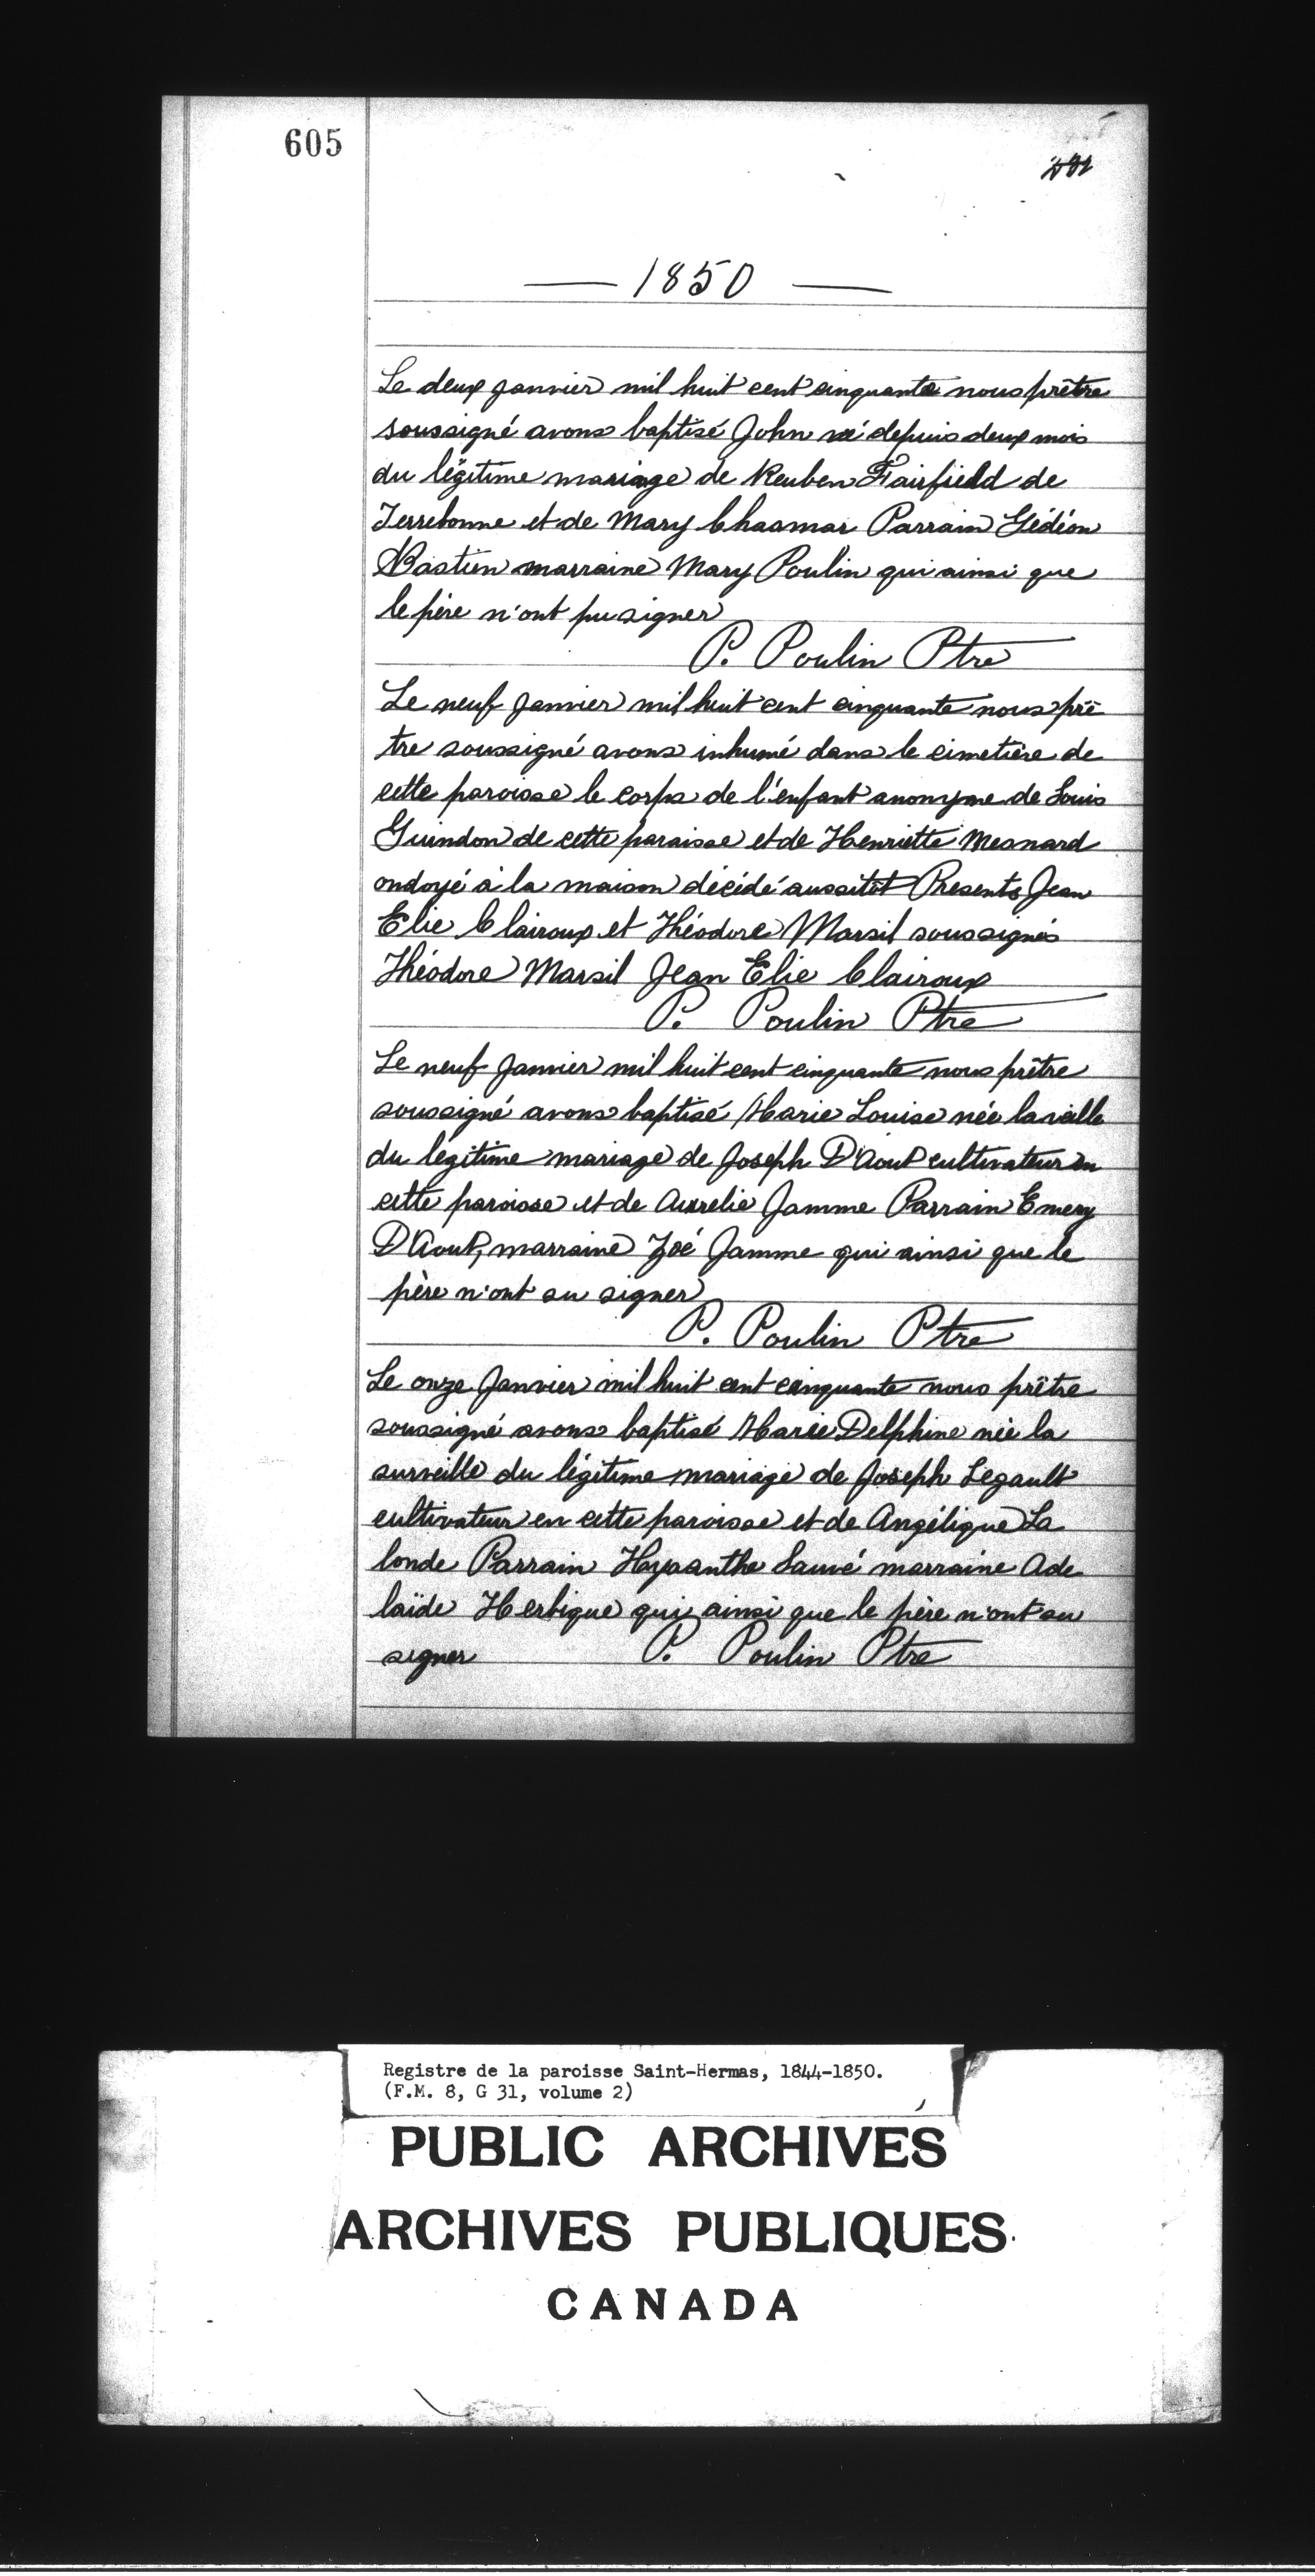 605
— 1850 —
Le deux Janvier mil huit cent cinquante nous prêtre
soussigné avons baptisé John né depuis deux mois
du légitime mariage de Reuben Fairfield de
Terrebonne et de Mary Chasmar Parrain Gédéon
Bastien marraine Mary Poulin qui ainsi que
le père n'ont pu signer
P. Poulin Ptre
Le neuf Janvier mil huit cent cinquante nous prê
tre soussigné avons inhumé dans le cimetière de
cette paroisse le corps de l'enfant anonyme de Louis
Guindon de cette paroisse et de Henriette Mesnard
ondoyé à la maison décédé aussitôt Presents Jean
Elie Clairoux et Théodore Marsil soussignés
Théodore Marsil Jean Elie Clairoux
P. Poulin Ptre
Le neuf Janvier mil huit cent cinquante nous prêtre
soussigné avons baptisé Marie Louise née la veille
du légitime mariage de Joseph D'Aout cultivateur en
cette paroisse et de Aurelie Jamme Parrain Emery
D'Aout, marraine Zoé Jamme qui ainsi que le
père n'ont su signer
P. Poulin Ptre
Le onze Janvier mil huit cent cinquante nous prêtre
soussigné avons baptisé Marie Delphine née la
surveille du légitime mariage de Joseph Legault
cultivateur en cette paroisse et de Angélique La
londe Parrain Hyacinthe Sauvé marraine Ade
laïde Herbique qui ainsi que le père n'ont su
signer P. Poulin Ptre
Registre de la paroisse Saint-Hermas, 1844-1850.
(F.M. 8, G 31, volume 2)
PUBLIC ARCHIVES
ARCHIVES PUBLIQUES
CANADA